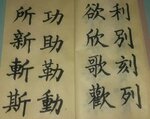 利別刻列
欲欣歌歡
功助勒動
所新斬斯